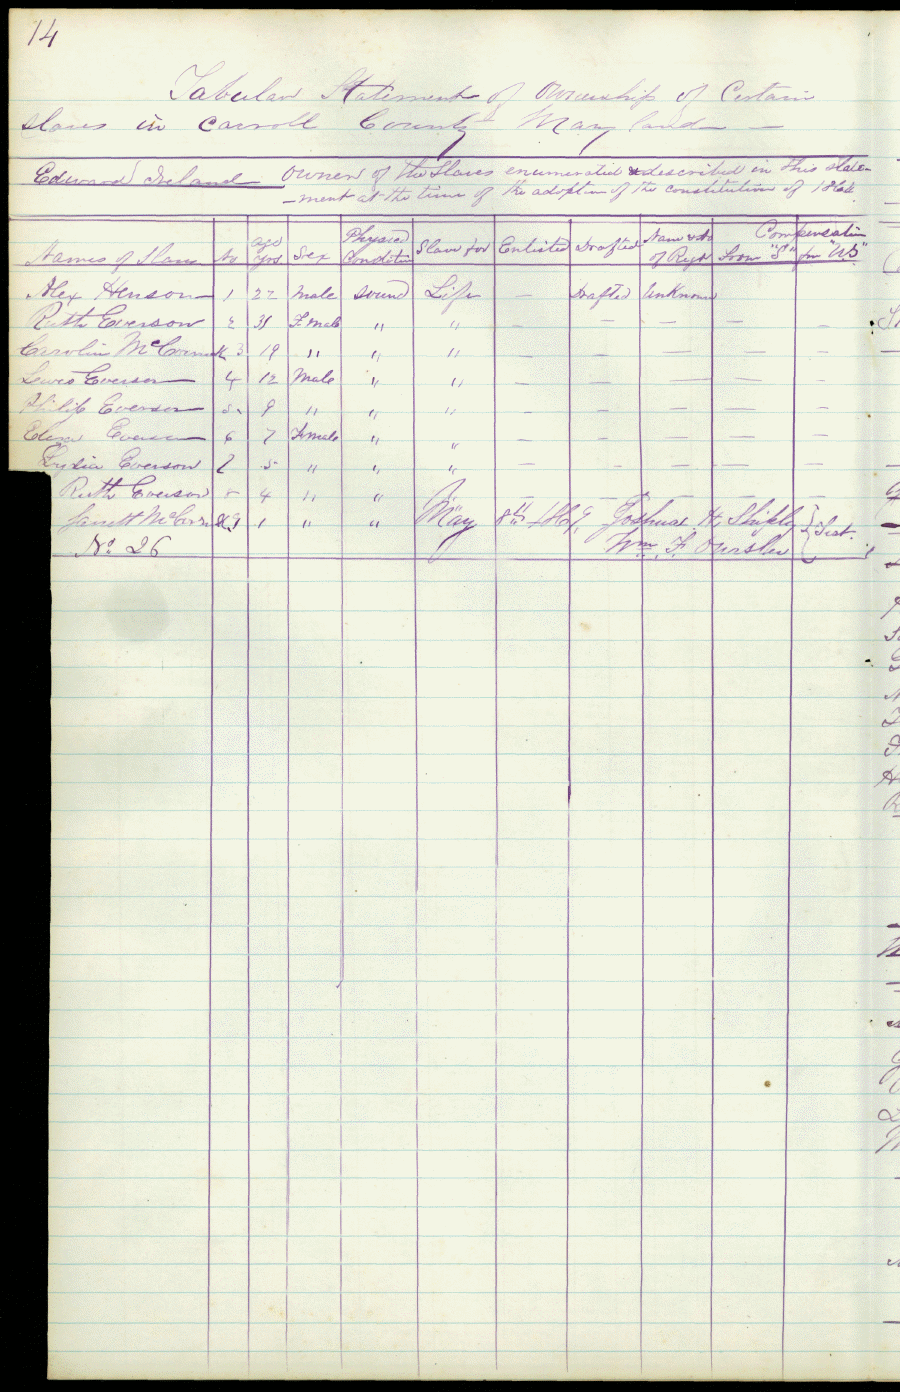 14
Tabular Statement of Ownership of Certain
slaves in Carroll County Maryland —
Edward Ireland owner of the Slaves enumerated & described in this state-
-ment at the time of the adoption of the constitution of 1864
Names of Slaves No age yrs Sex Physical Condition Slave for Enlisted Drafted Name & No of Regt Compensation from "S" from "US"
Alex Henson 1 22 Male sound Life — Drafted Unknown
Ruth Everson 2 31 Female " " — — — — —
Caroline McCormick 3 19 " " " — — — — —
Lewis Everson 4 12 Male " " — — — — —
Philip Everson 5 9 " " " — — — — —
Eliza Everson 6 7 Female " " — — — — —
Lydia Everson 7 5 " " " — — — — —
Ruth Everson 8 4 " " " — — — — —
Garrett McCormick 9 1 " " " May 8th 1867 Joshua H. Shipley } Test.
No 26 Wm. F. Oursler